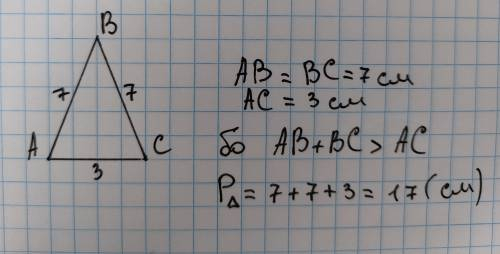 B
7 7
A C
3
AB = BC = 7 см
AC = 3 см
бо AB + BC > AC
P△ = 7 + 7 + 3 = 17 (см)